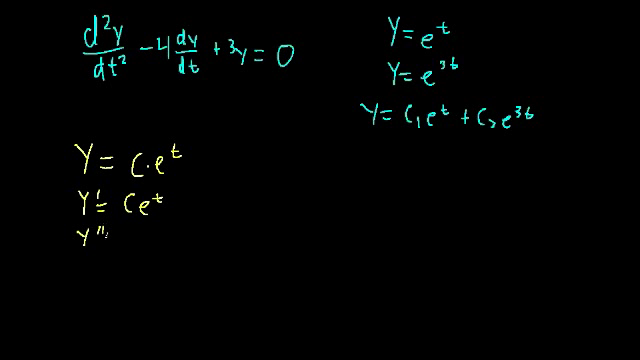 d²y/dt² - 4 dy/dt + 3y = 0
y = e^t
y = e^3t
y = c₁e^t + c₂e^3t
y = c·e^t
y' = ce^t
y"